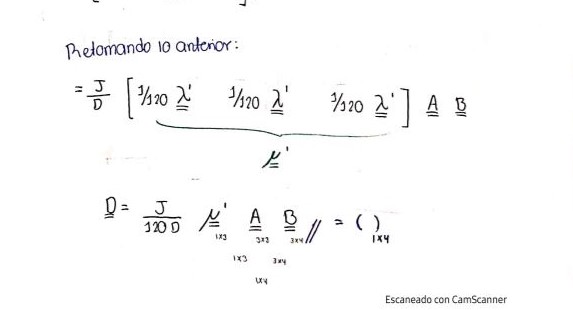 Retomando lo anterior:
= J/D [1/120 λ' 1/120 λ' 1/120 λ'] A B
μ'
D = J/120 D μ' A B // = ( )
1x3 3x3 3x4 1x4
1x3 3x4
1x4
Escaneado con CamScanner